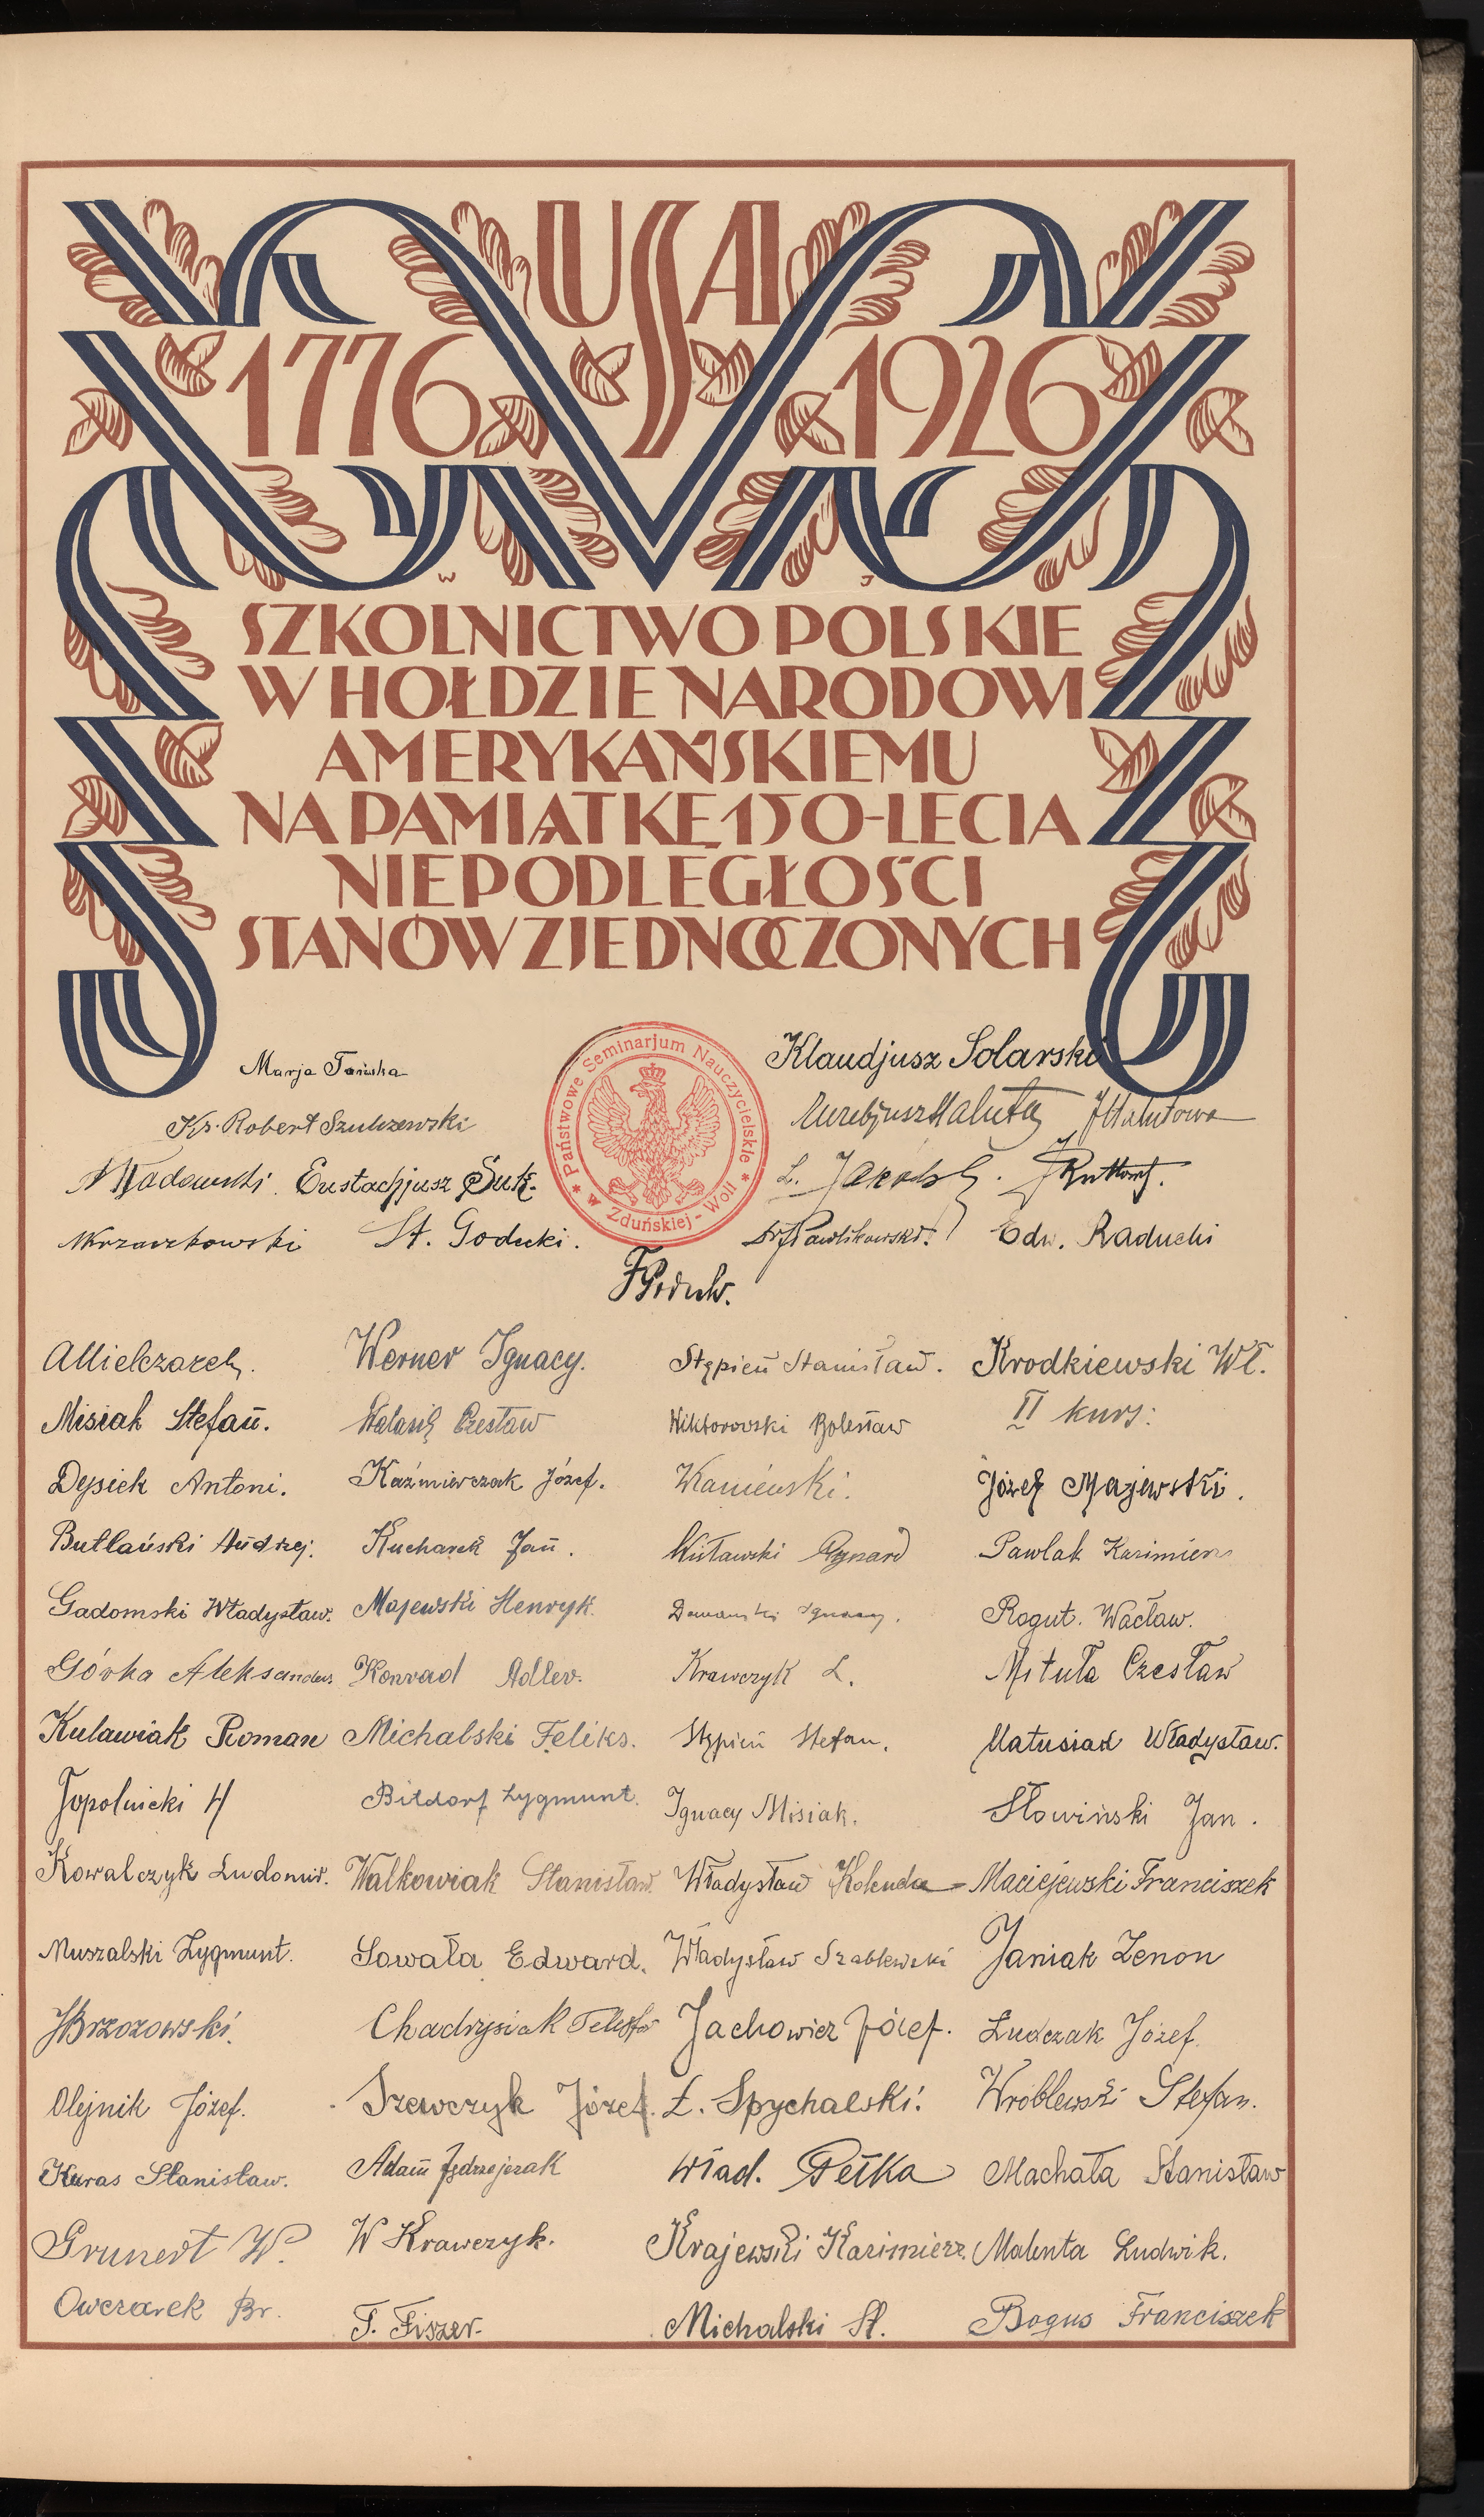 USA
1776 1926
W J
SZKOLNICTWO POLSKIE
W HOŁDZIE NARODOWI
AMERYKAŃSKIEMU
NA PAMIĄTKĘ 150-LECIA
NIEPODLEGŁOŚCI
STANÓW ZJEDNOCZONYCH
Państwowe Seminarjum Nauczycielskie
* w Zduńskiej-Woli *
Marja Tańska
Klaudjusz Solarski
Ks. Robert Szulczewski
Euzebjusz Haluta J Halutowa
Eustachjusz Suk.
L.
St. Godecki.
Dr J Pawlikowski. Edw. Raducki
AMielczarek.
Werner Ignacy.
Stępień Stanisław.
Krodkiewski Wł.
Misiak Stefan.
Walasik Czesław
Wiktorowski Bolesław
II kurs:
Depsiek Antoni.
Kaźmierczak Józef.
Kamieński.
Józef Majewski.
Butlański Andrzej.
Kucharek Jan.
Wisławski Rynard
Pawlak Kazimierz
Gadomski Władysław.
Majewski Henryk.
Domański Ignacy.
Rogut. Wacław.
Górka Aleksander
Konrad Adler.
Krawczyk L.
Mituła Czesław
Kulawiak Roman
Michalski Feliks.
Stępień Stefan.
Matusiak Władysław.
Topolnicki H
Bitdorf Zygmunt.
Ignacy Misiak.
Słowiński Jan.
Kowalczyk Ludomir.
Walkowiak Stanisław.
Władysław Kolenda
Maciejewski Franciszek
Muszalski Zygmunt.
Sowała Edward.
Władysław Szablewski
Janiak Zenon
JBrzozowski.
Chadrysiak Telesfor
Jachowicz Józef.
Ludczak Józef.
Olejnik Józef.
Szewczyk Józef.
Ł. Spychalski.
Wróblewski Stefan.
Kuras Stanisław.
Adam Jędrzejczak
Wład. Pełka
Machała Stanisław
Grunert W.
W Krawczyk.
Krajewski Kazimierz.
Malenta Ludwik.
Owczarek Br.
F. Fiszer.
Michalski St.
Bogus Franciszek